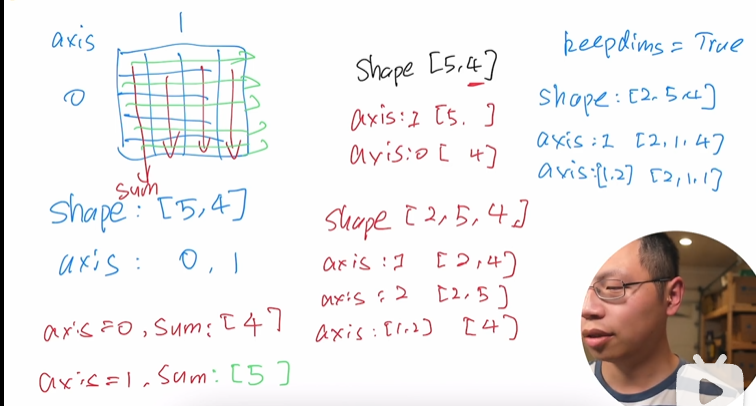 axis 1
0
sum
shape: [5,4]
axis: 0, 1
axis=0, sum: [4]
axis=1, sum: [5]
shape [5,4]
axis:1 [5. ]
axis:0 [ 4]
shape [2,5,4,]
axis:1 [2,4]
axis:2 [2,5]
axis:[1,2] [4]
keepdims = True
shape: [2,5,4]
axis:1 [2,1,4]
axis:[1,2] [2,1,1]